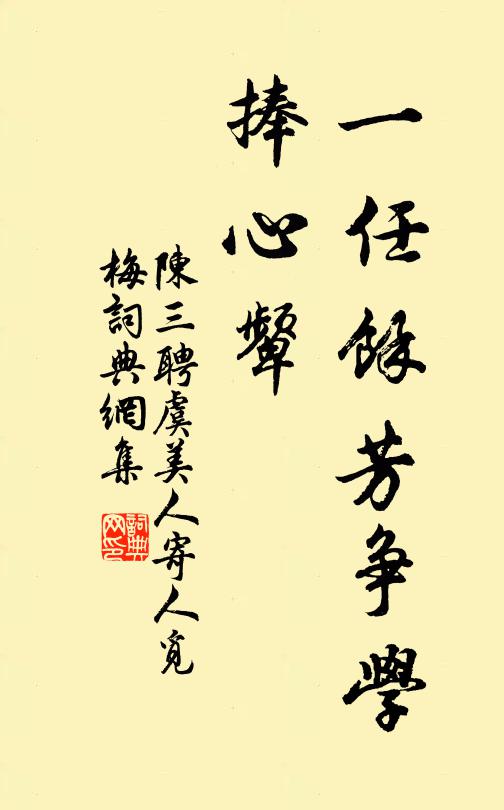 一任餘芳争學
捧心顰
陳三聘虞美人寄人覓
梅詞典網集
詞典
网印